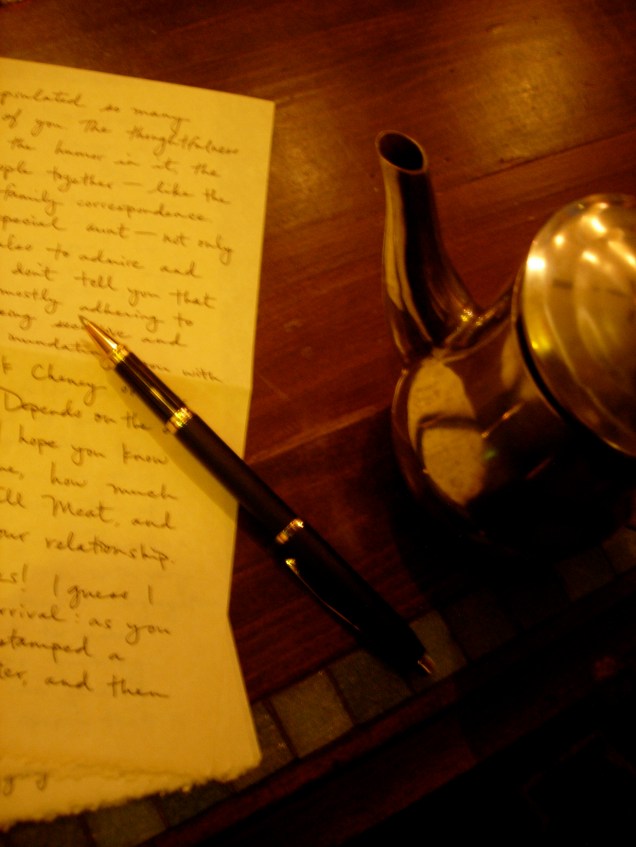 so many
of you the thoughtfulness
the humor in it, the
together — like the
family correspondence
aunt — not only
to admire and
don't tell you that
mostly adhering to
and
with
Cheney
Depends on the
I hope you know
how much
Meat, and
relationship.
I guess I
as you
stamped a
and then